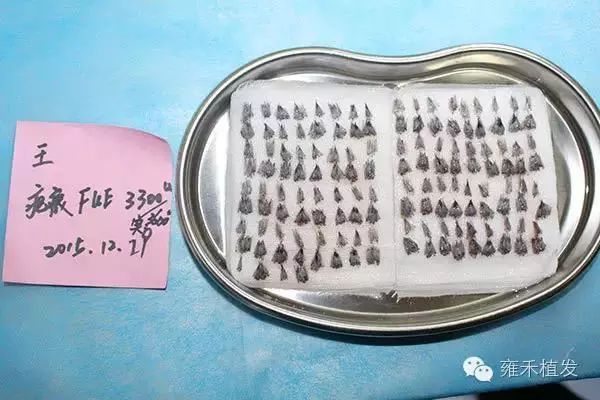 王
疤痕 FUE 3300
2015.12.29
雍禾植发